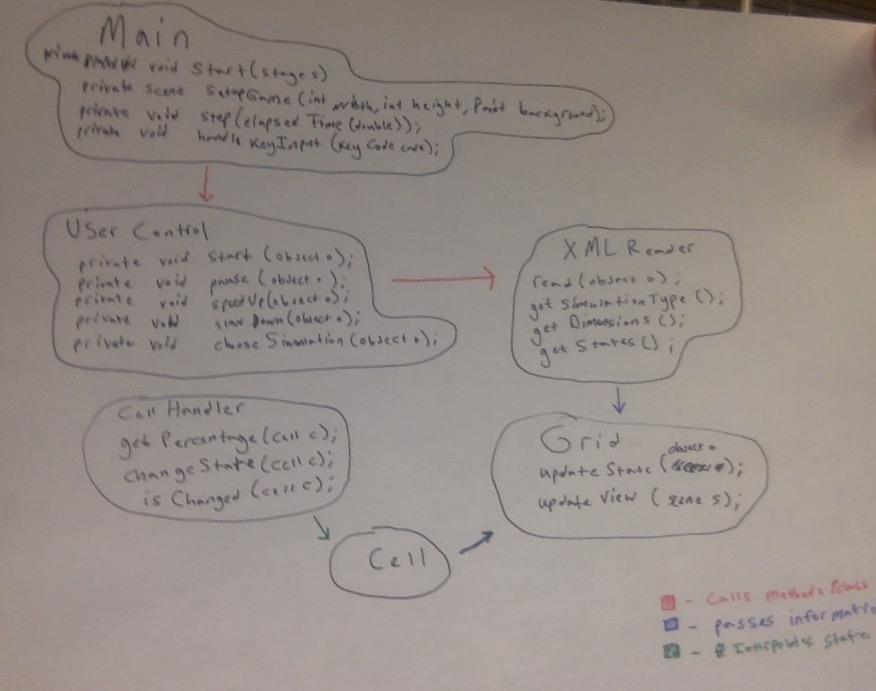 Main
void Start(stage s)
private scene SetupGame (int width, int height, Paint background);
private void step(elapsed Time (double));
private void handle KeyInput (Key Code code);
User Control
private void start (object o);
private void pause (object o);
private void speedUp(object o);
private void slow Down(object o);
private void chose Simulation (object o);
XML Reader
read (object o);
get SimulationType ();
get Dimensions ();
get States ();
Cell Handler
get Percentage (cell c);
change State (cell c);
is Changed (cell c);
Grid
object o
update State ( );
update View (scene s);
Cell
- Calls methods/class
- passes informatio
- Interpolates state